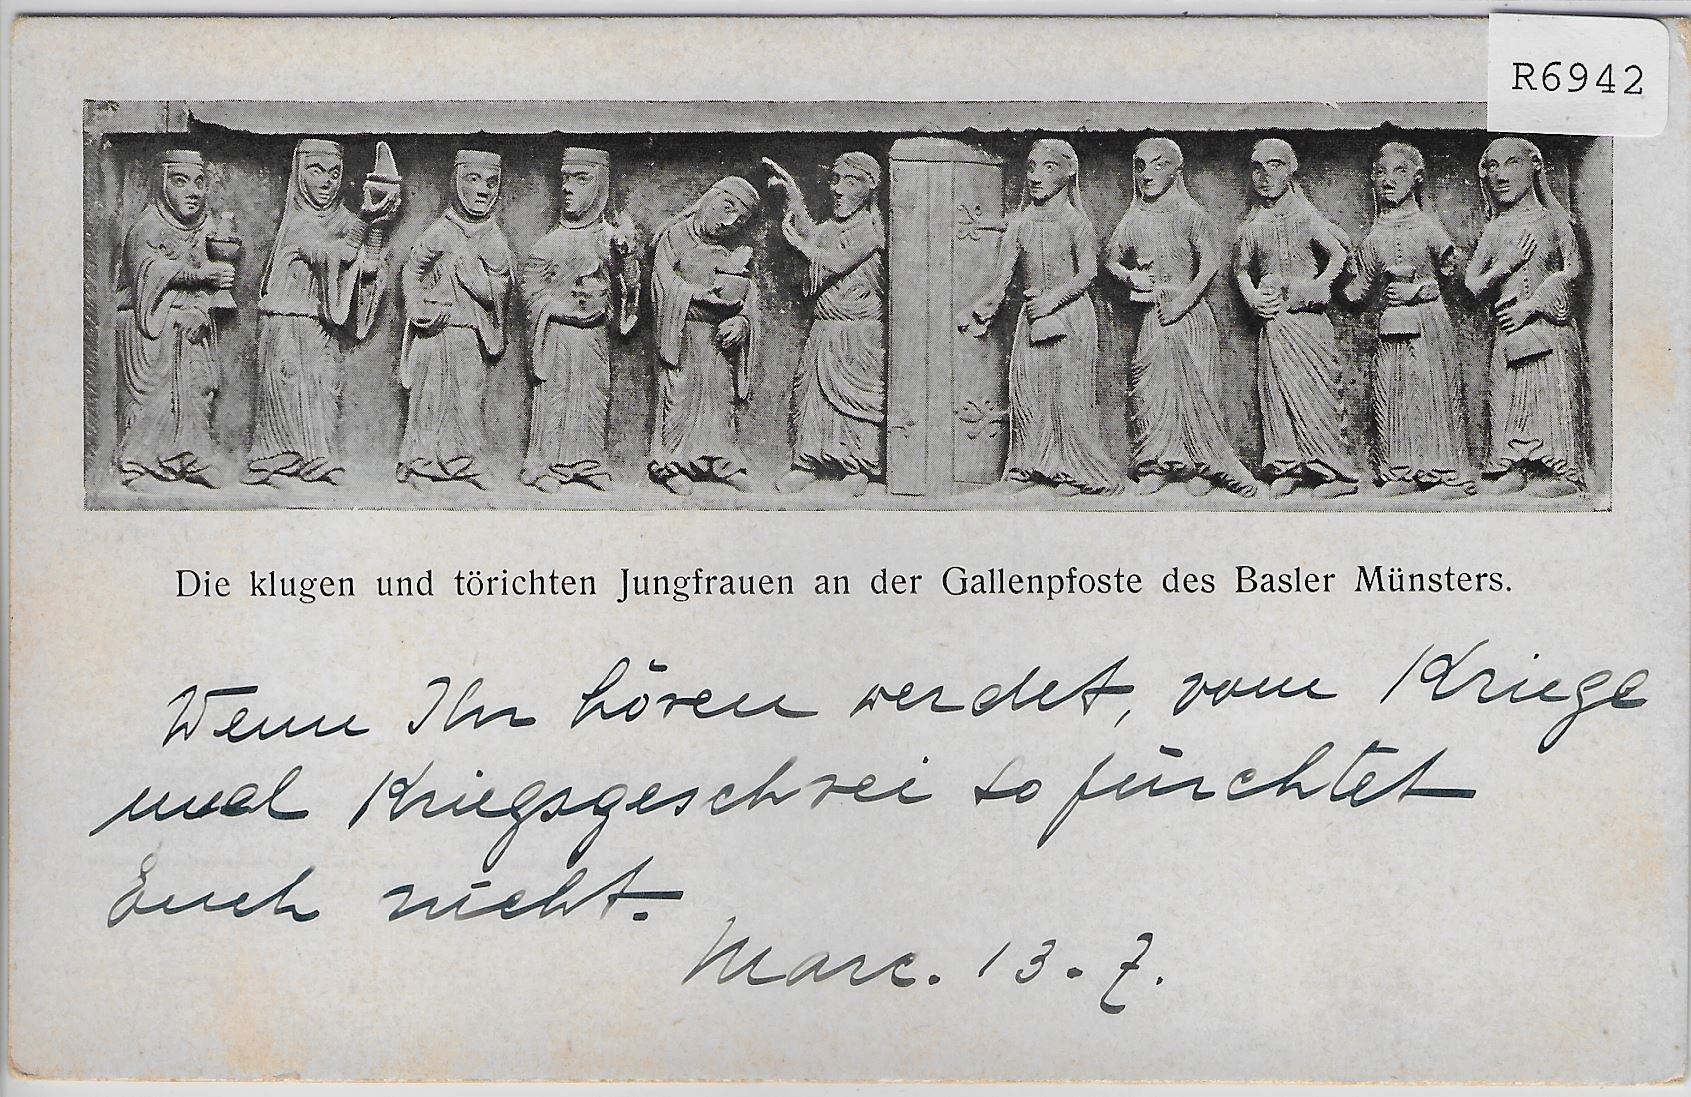 R6942
Die klugen und törichten Jungfrauen an der Gallenpfoste des Basler Münsters.
Wenn Ihr hören werdet, vom Kriege
und Kriegsgeschrei so fürchtet
Euch nicht.
Marc. 13. 7.